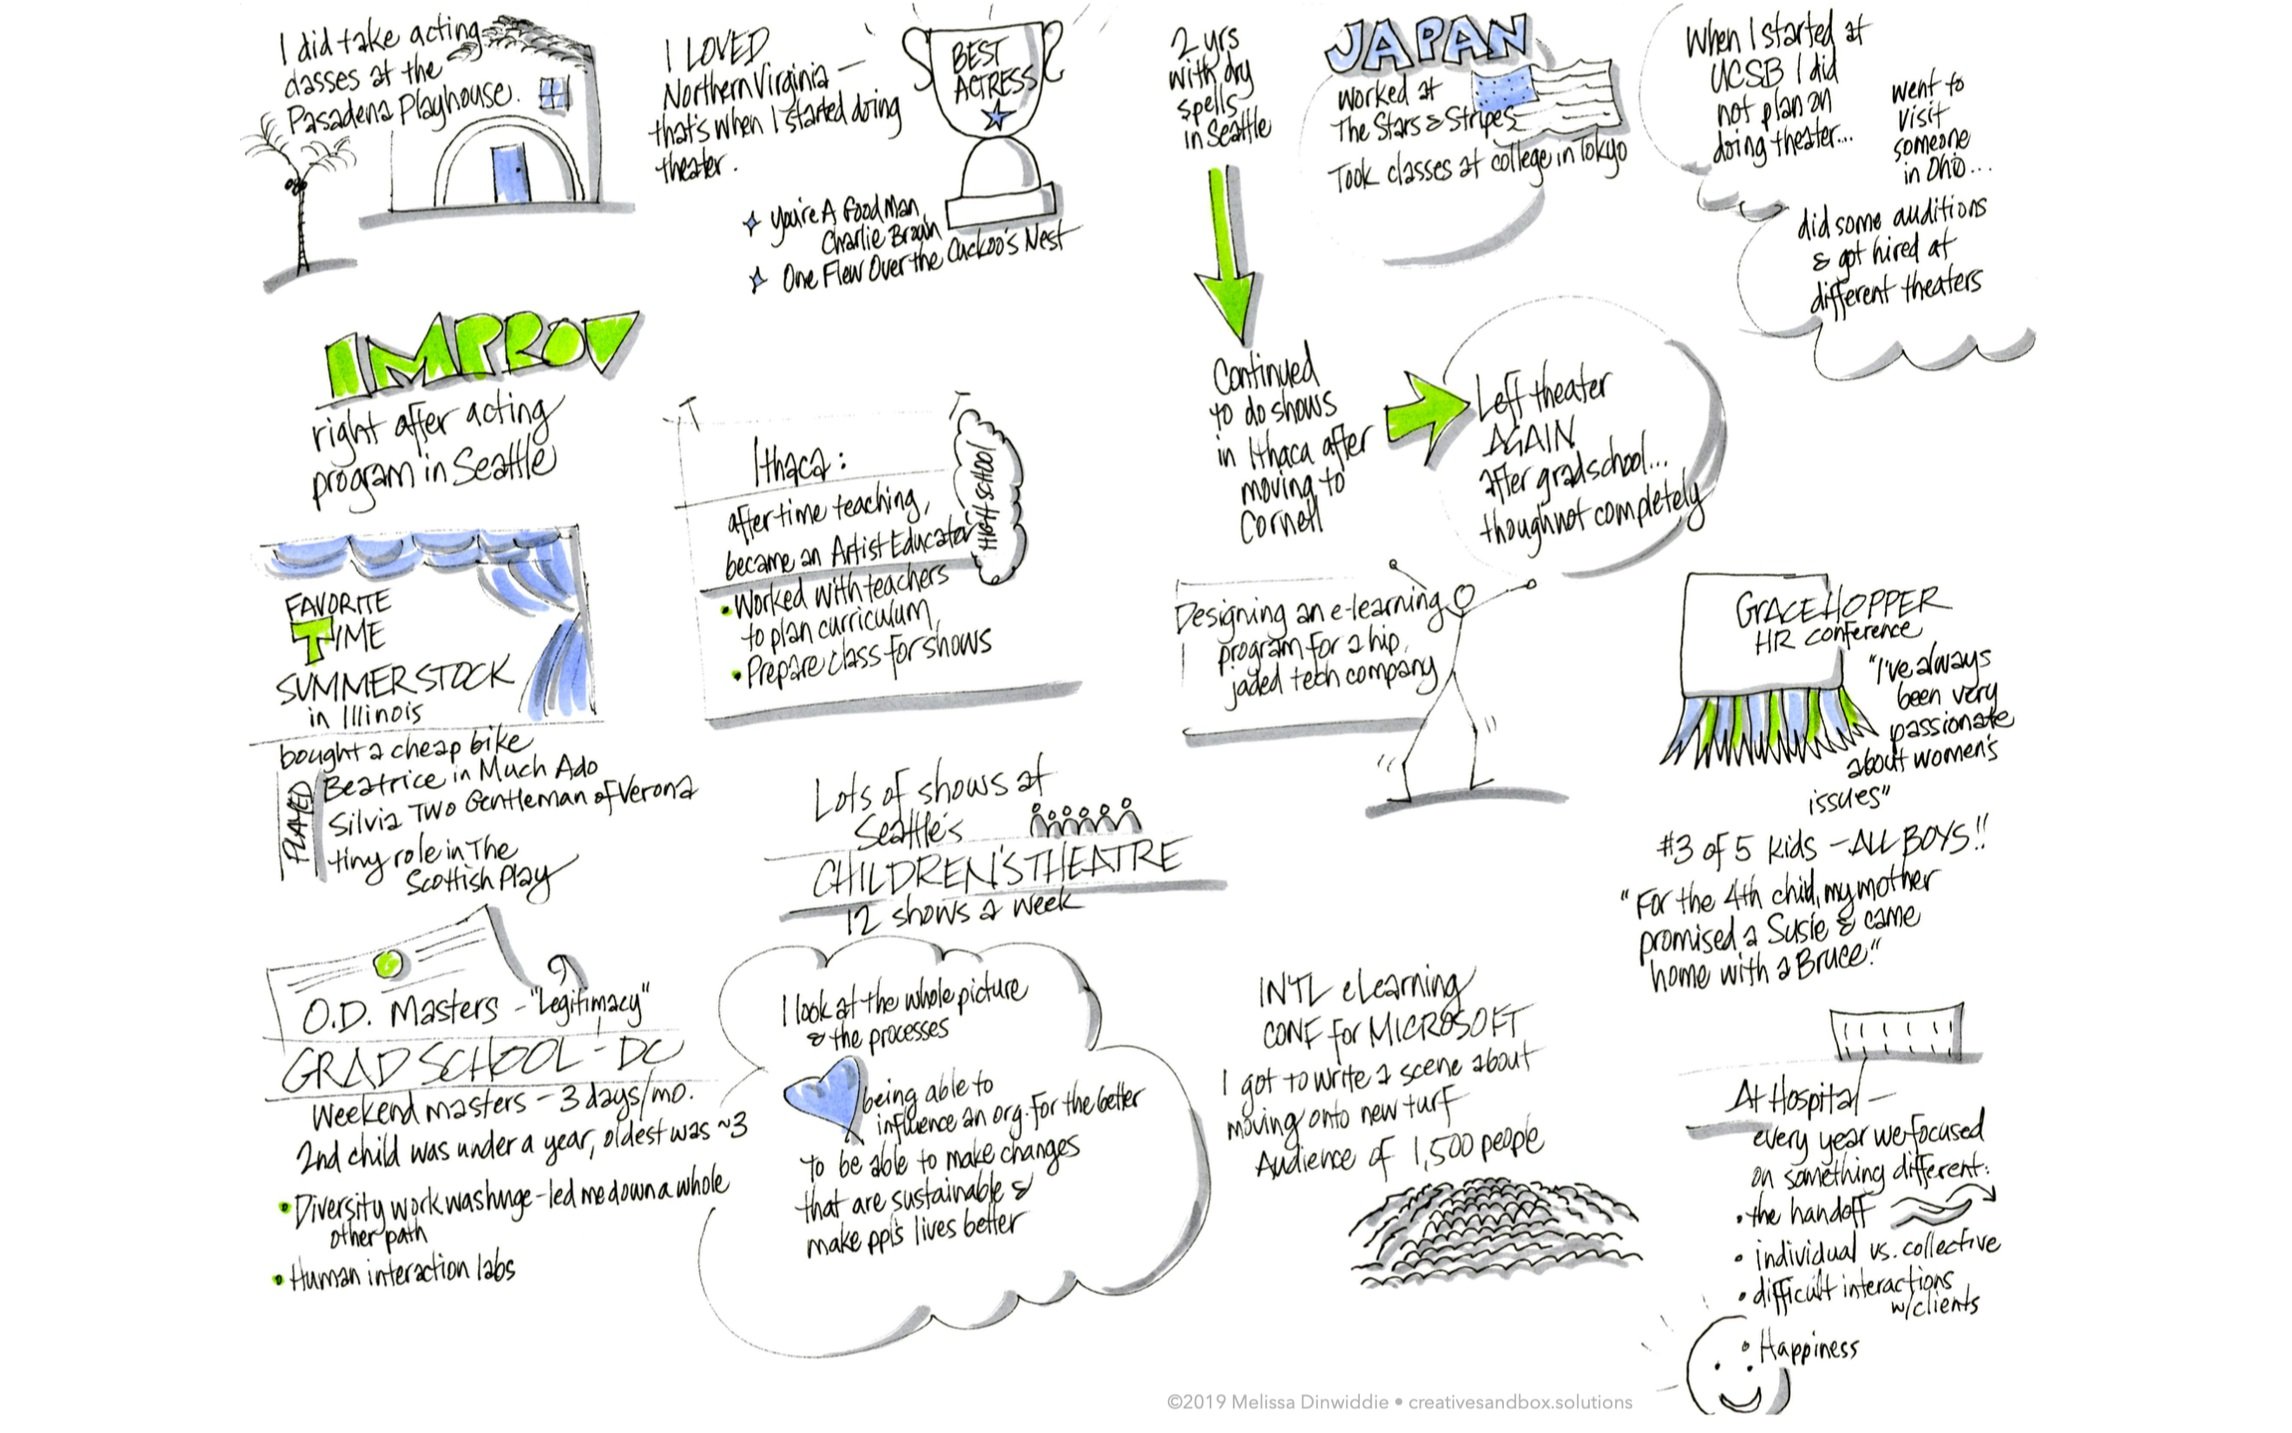 I did take acting
classes at the
Pasadena Playhouse.
I LOVED
Northern Virginia —
that's when I started doing
theater.
BEST
ACTRESS
You're A Good Man,
Charlie Brown
One Flew Over the Cuckoo's Nest
2 yrs
with dry
spells
in Seattle
Continued
to do shows
in Ithaca after
moving to
Cornell
Left theater
AGAIN
after grad school...
though not completely
JAPAN
worked at
The Stars & Stripes
Took classes at college in Tokyo
When I started at
UCSB I did
not plan on
doing theater...
went to
visit
someone
in Ohio...
did some auditions
& got hired at
different theaters
IMPROV
right after acting
program in Seattle
FAVORITE
TIME
SUMMER STOCK
in Illinois
bought a cheap bike
PLAYED
Beatrice in Much Ado
Silvia Two Gentleman of Verona
tiny role in The
Scottish Play
Ithaca:
after time teaching,
became an Artist Educator
HIGH SCHOOL
• Worked with teachers
to plan curriculum,
• Prepare class for shows
Lots of shows at
Seattle's
CHILDREN'S THEATRE
12 shows a week
Designing an e-learning
program for a hip,
jaded tech company
GRACE HOPPER
HR conference
"I've always
been very
passionate
about women's
issues"
#3 of 5 kids - ALL BOYS!!
"For the 4th child, my mother
promised a Susie & came
home with a Bruce."
O.D. Masters - "Legitimacy"
GRAD SCHOOL - DC
Weekend masters - 3 days/mo.
2nd child was under a year, oldest was ~3
• Diversity work was huge - led me down a whole
other path
• Human interaction labs
I look at the whole picture
& the processes
being able to
influence an org. for the better
to be able to make changes
that are sustainable &
make ppl's lives better
INT'L eLearning
CONF for MICROSOFT
I got to write a scene about
moving onto new turf
Audience of 1,500 people
At Hospital —
every year we focused
on something different:
• the handoff
• individual vs. collective
• difficult interactions
w/clients
• Happiness
©2019 Melissa Dinwiddie • creativesandbox.solutions